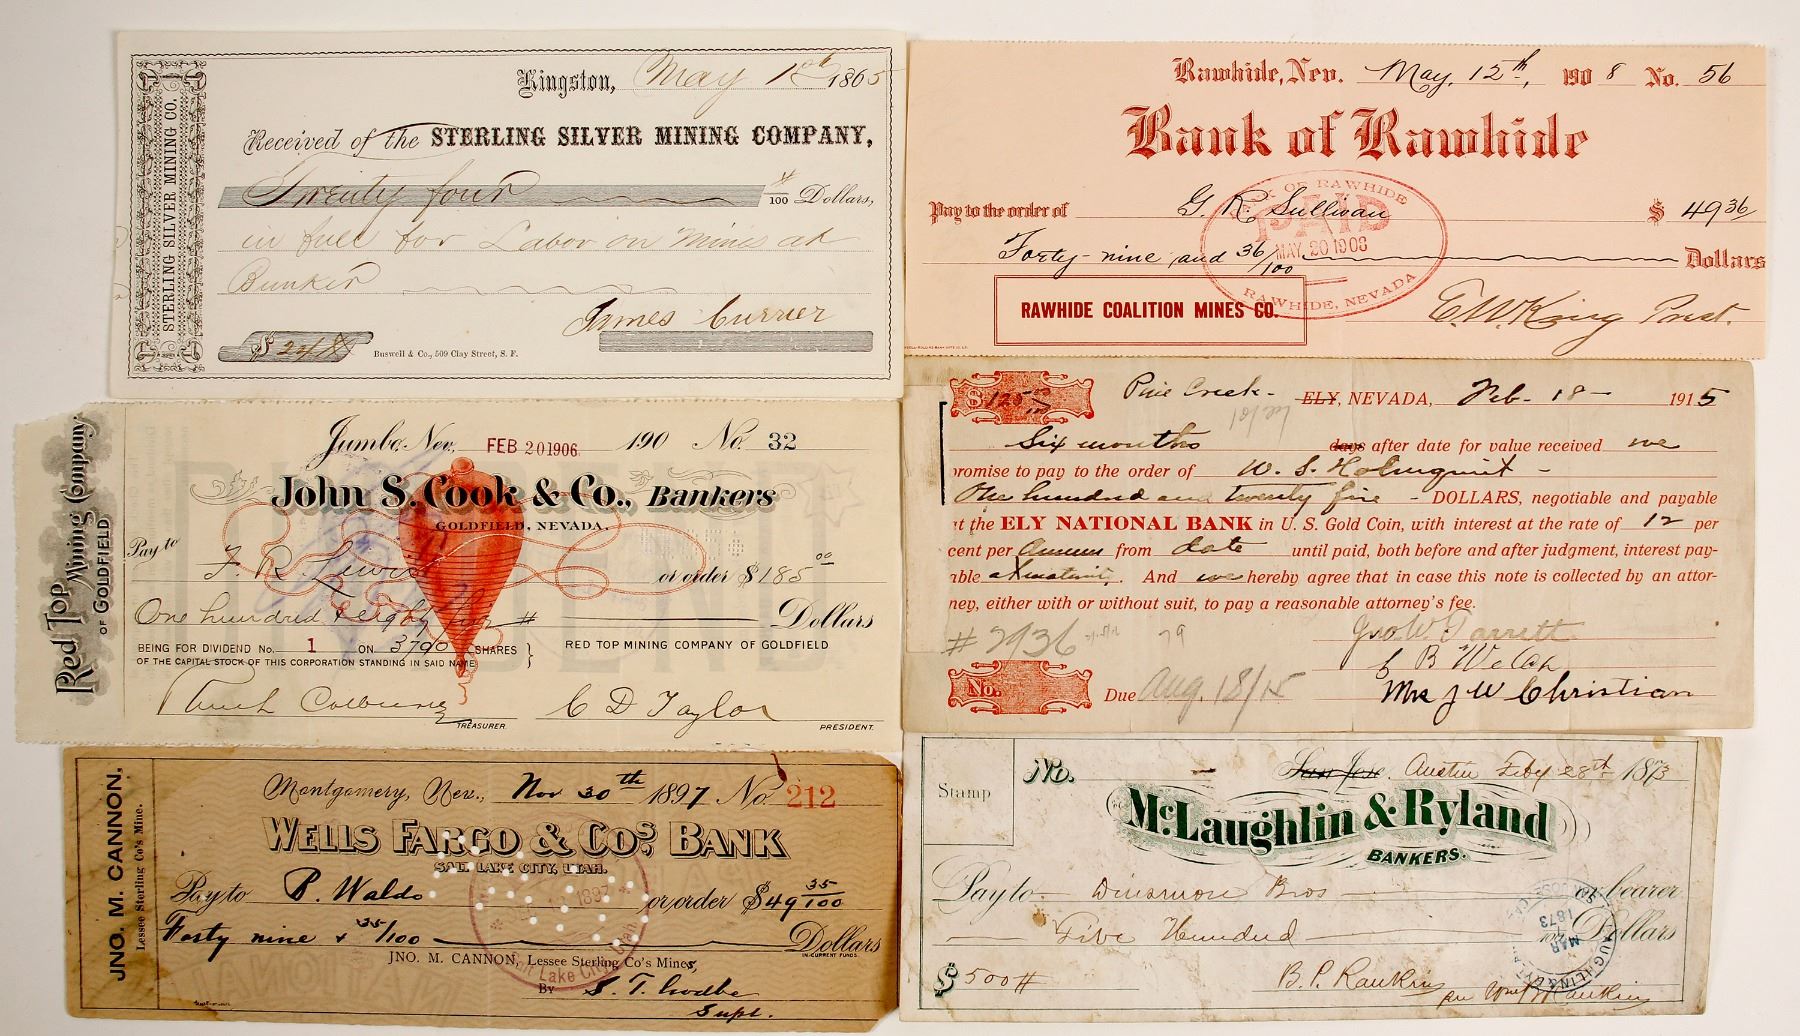 STERLING SILVER MINING CO.
Kingston, May 1865
Received of the STERLING SILVER MINING COMPANY,
Twenty four # / 100 Dollars,
in full for Labor on Mine at
Bunker
James Currier
$24 #
Buswell & Co., 509 Clay Street, S. F.
Rawhide, Nev. May, 12th, 1908 No. 56
Bank of Rawhide
Pay to the order of G. R. Sullivan $ 49 36
Forty-nine and 36/100 Dollars
BANK OF RAWHIDE
PAID
MAY 20 1908
RAWHIDE, NEVADA
RAWHIDE COALITION MINES CO.
E. W. King Prest.
Red Top Mining Company
OF GOLDFIELD
Jumbo, Nev., FEB 20 1906 190 No. 32
John S. Cook & Co., Bankers
GOLDFIELD, NEVADA.
DIVIDEND
Pay to F. R. Lewis or order $185.00
One hundred & eighty five # Dollars
BEING FOR DIVIDEND No. 1 ON 3700 SHARES
OF THE CAPITAL STOCK OF THIS CORPORATION STANDING IN SAID NAME
RED TOP MINING COMPANY OF GOLDFIELD
TREASURER.
C D Taylor
PRESIDENT.
$125 00/100 Pine Creek - ELY, NEVADA, Feb - 18 - 1915
Six months days after date for value received we
promise to pay to the order of W. S. Holmquist -
One hundred and twenty five - DOLLARS, negotiable and payable
at the ELY NATIONAL BANK in U. S. Gold Coin, with interest at the rate of 12 per
cent per Annum from date until paid, both before and after judgment, interest pay-
able at maturity. And we hereby agree that in case this note is collected by an attor-
ney, either with or without suit, to pay a reasonable attorney's fee.
# 7936
Jno W. Parrett
C B Welch
No. Due Aug. 18/15
Mrs J W Christian
JNO. M. CANNON,
Lessee Sterling Co's Mine.
Montgomery, Nev., Nov 30th 1897 No. 212
WELLS FARGO & CO'S BANK
SALT LAKE CITY, UTAH.
Pay to P. Waldo or order $49 35/100
Forty nine & 35/100 Dollars
IN CURRENT FUNDS
JNO. M. CANNON, Lessee Sterling Co's Mines,
By
Supt.
1897
Salt Lake City, Utah
Stamp
No. - San Jose. Austin Feby 28th 1873
McLaughlin & Ryland
BANKERS.
Pay to Dinsmore Bros or bearer
Five Hundred 100 Dollars
$500 #
B. P. Rankin
MAR
1873